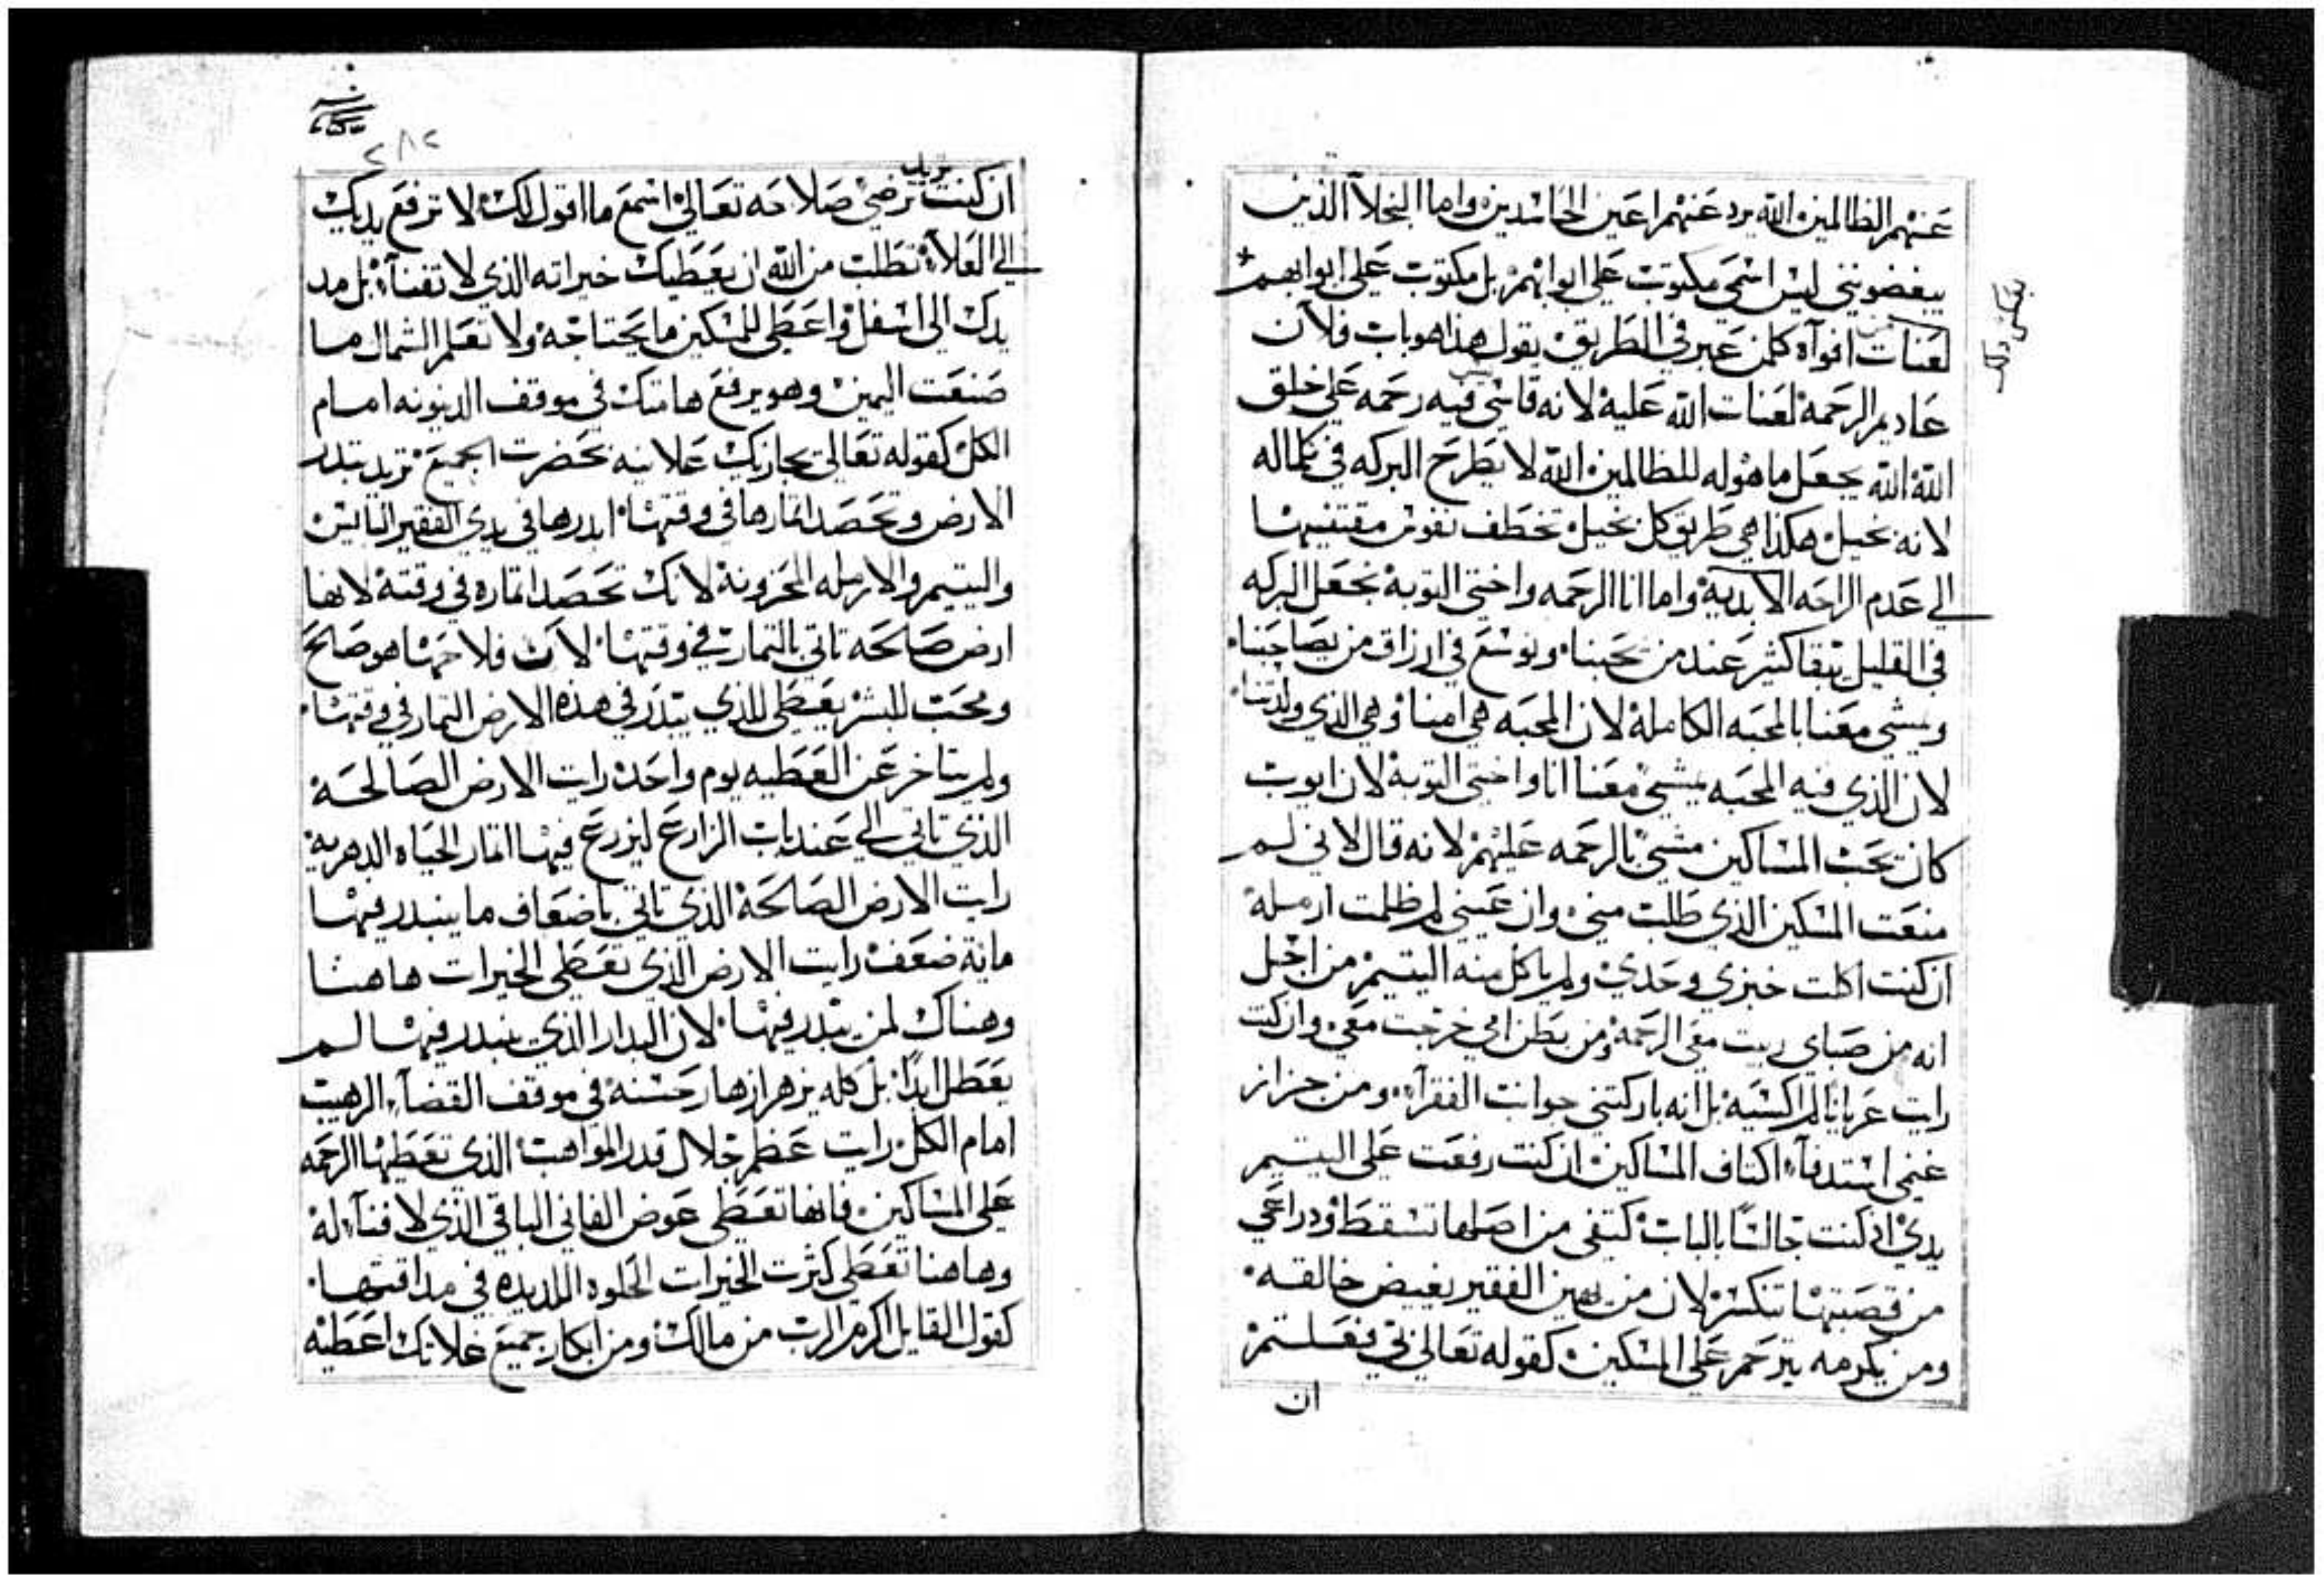 عنهم الظالمين الله يرد عنهم اعين الحاسدين واما البخلآ الذين
يبغضونني ليس اسمي مكتوب علي ابوابهم بل مكتوب علي ابوابهم
لعنات من افواه كلمن عبر في الطريق يقول هذا هو باب فلان
عاديم الرحمة لعنات الله عليه لانه قاسي ليس فيه رحمه علي خلق
الله الله يجعل ما هو له للظالمين الله لا يطرح البركه في كلما له
لانه بخيل هكذا هي طريق كل بخيل تخطف نفوس مقتنيها
الي عدم الراحه الابدية واما انا الرحمه واختي التوبة نجعل البركه
في القليل يبقا كثير عند من يحبنا ونوسع في ارزاق من يصاحبنا
ويمشي معنا بالمحبه الكاملة لان المحبه هي امنا وهي الذي ولدتنا
لان الذي فيه المحبه يمشي معنا انا واختي التوبة لان ايوب
كان يحب المساكين مشي بالرحمه عليهم لانه قال لاني لم
منعت المسكين الذي طلب مني وان عيني لم ظلمت ارملة
ان كنت اكلت خبزي وحدي ولم ياكل منه اليتيم من اجل
انه من صباي ربيت معي الرحمة ومن بطن امي خرجت معي وان كنت
رايت عريانا لم اكسيه بل انه باركتني جوانب الفقرآ ومن جزاز
غنمي استدفآ اكتاف المساكين ان كنت رفعت علي اليتيم
يدي اذ كنت جالسا بالباب كتفي من اصلها تسقط ودراعي
من قصبتها تنكسر لان من يهين الفقير يغيض خالقه
ومن يكرمه يترحم علي المسكين كقوله تعالي بي فعلتم
ان
٢٨٢
ان كنت تريد ترضي صلاحه تعالي اسمع ما اقول لك لا ترفع يديك
الي العلآ تطلب من الله ان يعطيك خيراته الذي لا تفنآ بل مد
يدك الي اسفل واعطي للمسكين ما يحتاجه ولا تعلم الشمال ما
صنعت اليمين وهو يرفع هامتك في موقف الدينونه امام
الكل كقوله تعالي يجازيك علانيه بحضرت الجميع تريد تبدر
الارض وتحصد اتمارها في وقتها ابدرها في يدي الفقير البايس
واليتيم والارمله المحزونة لانك تحصد اتماره في وقته لانها
ارض صالحه تاتي بالتمار في وقتها لان فلاحها هو صالح
ومحب للبشر يعطي للذي يبدر في هذه الارض التمار في وقتها
ولم يتاخر عن العطيه يوم واحد رايت الارض الصالحة
الذي تاتي الي عند باب الزارع ليزرع فيها اتمار الحياه الدهرية
رايت الارض الصالحة الذي تاتي باضعاف ما يبدر فيها
ماية ضعف رايت الارض الذي تعطي الخيرات هاهنا
وهناك لمن يبدر فيها لان البدار الذي يبدر فيها لم
يعطل ابدًا بل كله يزهر ازهار حسنه في موقف القضآ الرهيب
امام الكل رايت عظم جلال قدر المواهب الذي تعطيها الرحمه
علي المساكين فانها تعطي عوض الفاني الباقي الذي لا فنآ له
وهاهنا تعطي كثرت الخيرات الحلوه اللديده في مداقتها
كقول القايل اكرم الرب من مالك ومن ابكار جميع غلاتك اعطيه